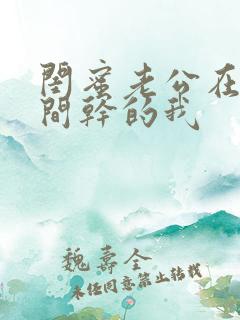 閨蜜老公在
間幹的我
魏壽全
未任同意禁止轉載